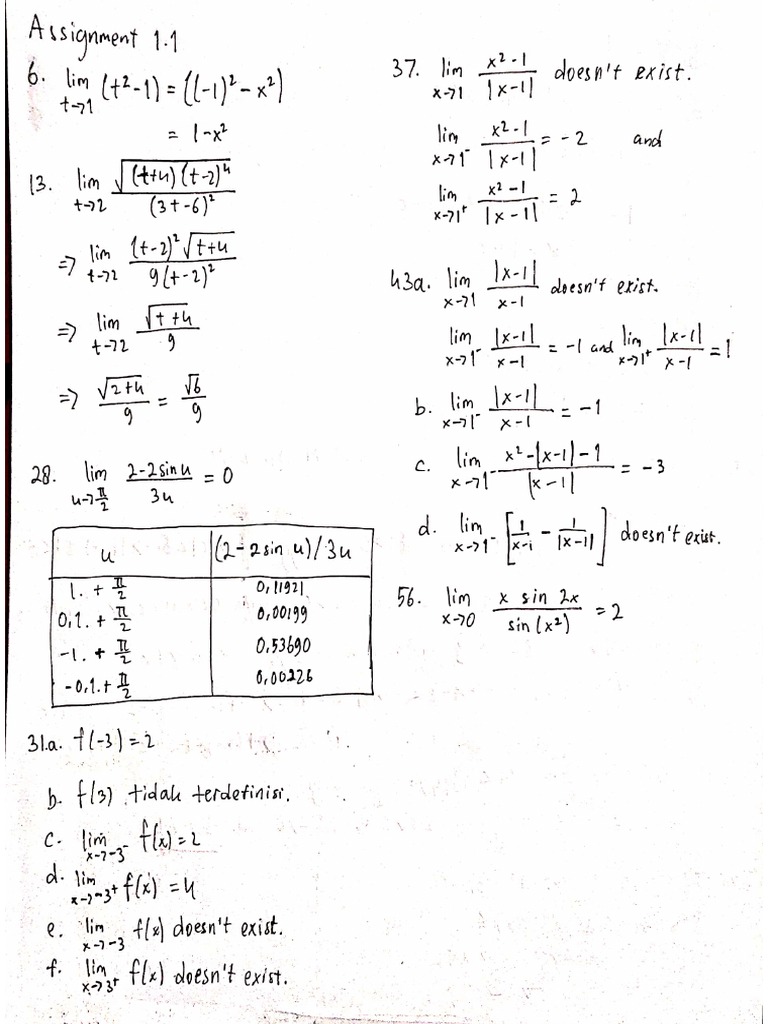 Assignment 1.1
6. lim t→1 (t²-1) = ((-1)² - x²)
= 1-x²
13. lim t→2 √((t+4)(t-2)⁴) / (3t-6)²
⇒ lim t→2 (t-2)²√(t+4) / 9(t-2)²
⇒ lim t→2 √(t+4) / 9
⇒ √(2+4) / 9 = √6 / 9
28. lim u→π/2 (2-2sin u) / 3u = 0
u | (2-2sin u)/3u
1. + π/2 | 0,11921
0,1. + π/2 | 0,00199
-1. + π/2 | 0,53690
-0,1. + π/2 | 0,00226
31.a. f(-3) = 2
b. f(3) tidak terdefinisi.
c. lim x→-3⁻ f(x) = 2
d. lim x→-3⁺ f(x) = 4
e. lim x→-3 f(x) doesn't exist.
f. lim x→3⁺ f(x) doesn't exist.
37. lim x→1 (x²-1) / |x-1| doesn't exist.
lim x→1⁻ (x²-1) / |x-1| = -2 and
lim x→1⁺ (x²-1) / |x-1| = 2
43a. lim x→1 |x-1| / (x-1) doesn't exist.
lim x→1⁻ |x-1| / (x-1) = -1 and lim x→1⁺ |x-1| / (x-1) = 1
b. lim x→1⁻ |x-1| / (x-1) = -1
c. lim x→1⁻ (x²-|x-1|-1) / |x-1| = -3
d. lim x→1⁻ [1/(x-1) - 1/|x-1|] doesn't exist.
56. lim x→0 (x sin 2x) / sin(x²) = 2